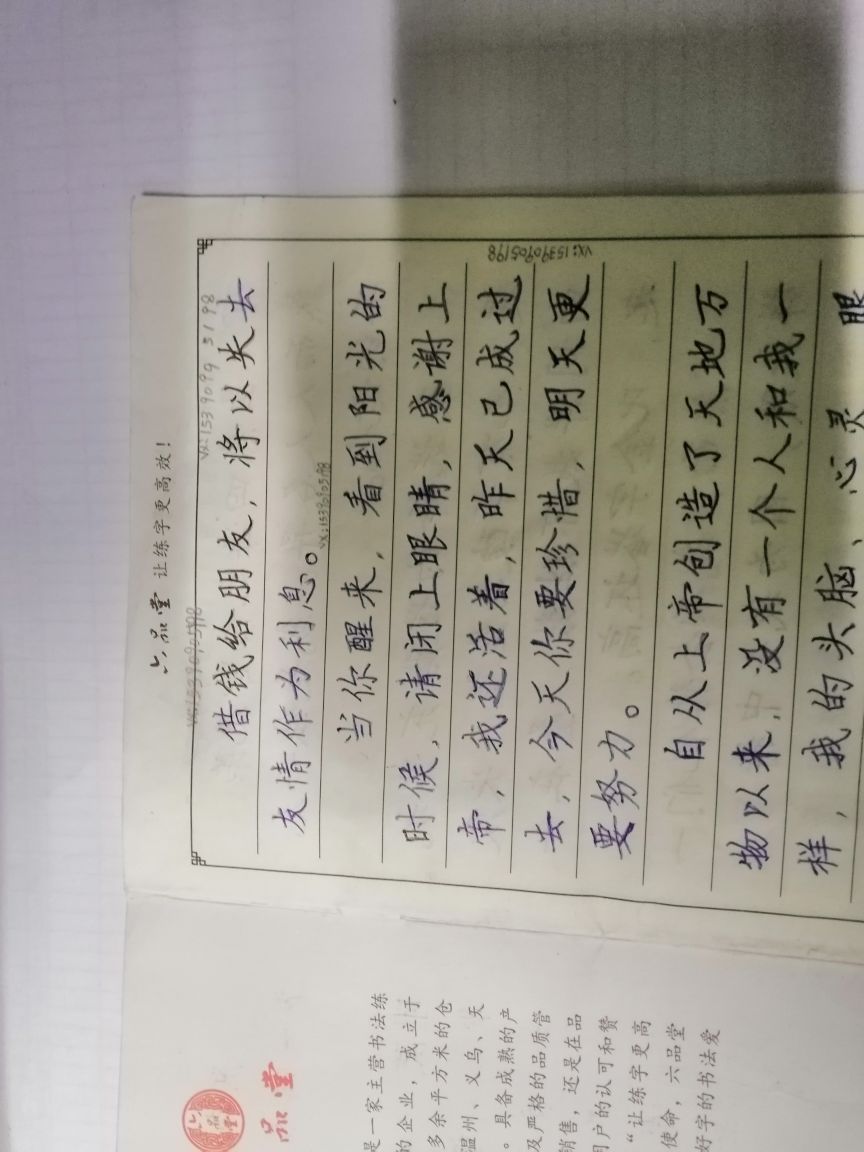 六品堂 让练字更高效！
借钱给朋友，将以失去
友情作为利息。
当你醒来，看到阳光的
时候，请闭上眼睛，感谢上
帝，我还活着，昨天已成过
去，今天你要珍惜，明天更
要努力。
自从上帝创造了天地万
物以来，没有一个人和我一
样，我的头脑、心灵、眼
VX:15390905198
VX:15390905198
VX:15390905198
六品堂
品堂
是一家主营书法练
的企业，成立于
多余平方米的仓
温州、义乌、天
。具备成熟的产
及严格的品质管
销售，还是在品
用户的认可和赞
“让练字更高
使命，六品堂
好字的书法爱